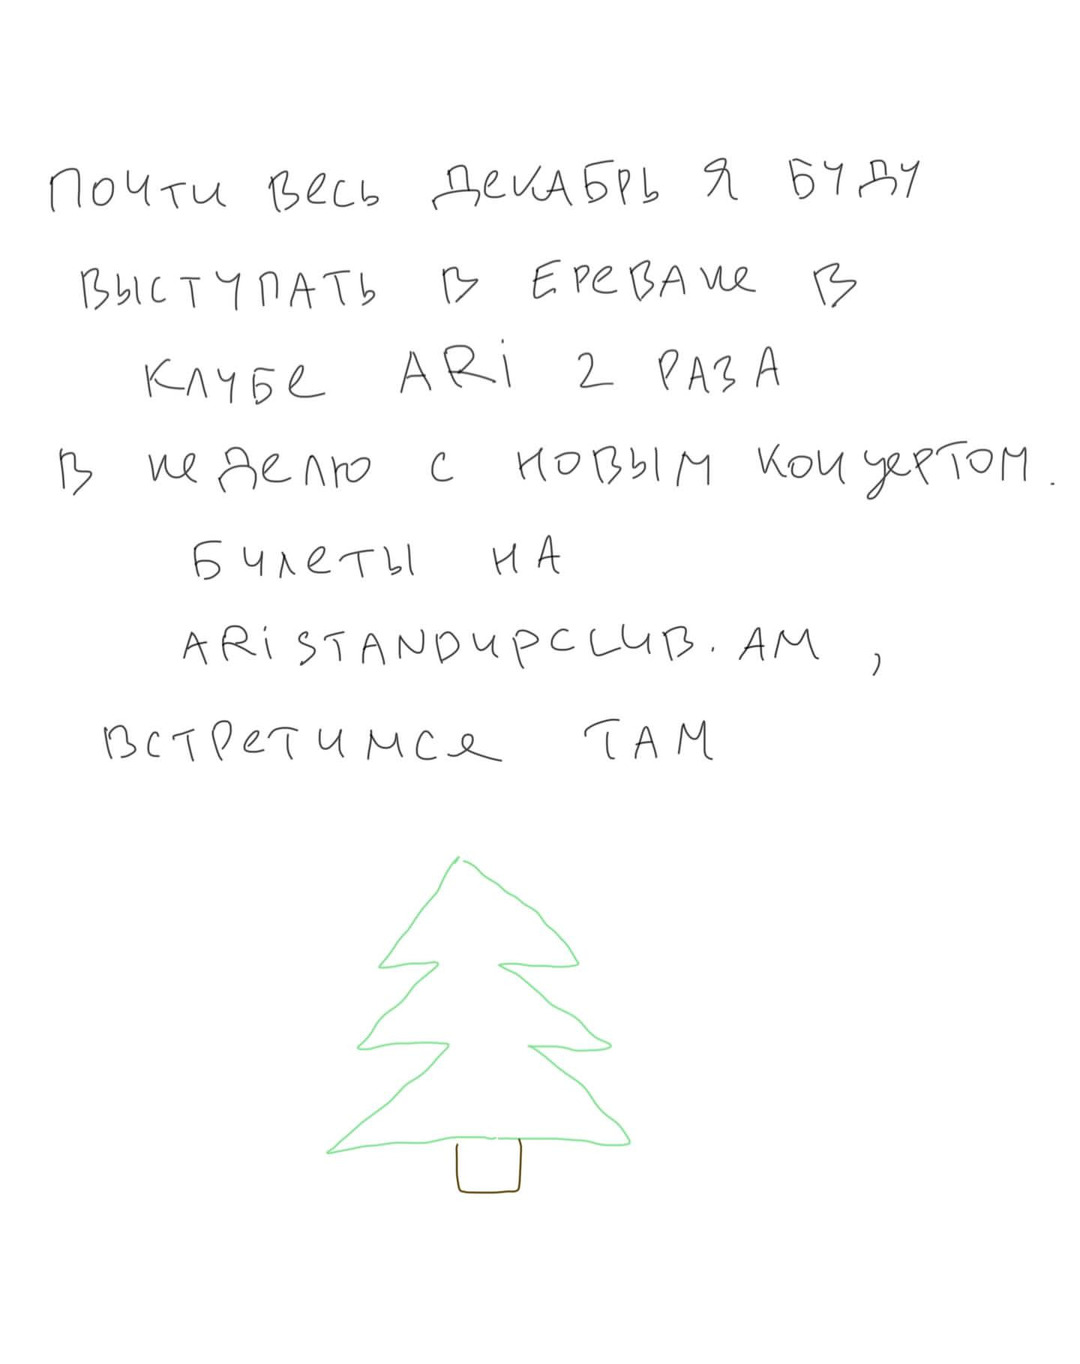 Почти весь декабрь я буду
выступать в Ереване в
клубе ARi 2 раза
в неделю с новым концертом.
Билеты на
ARiSTANDUPCLUB.AM,
встретимся там